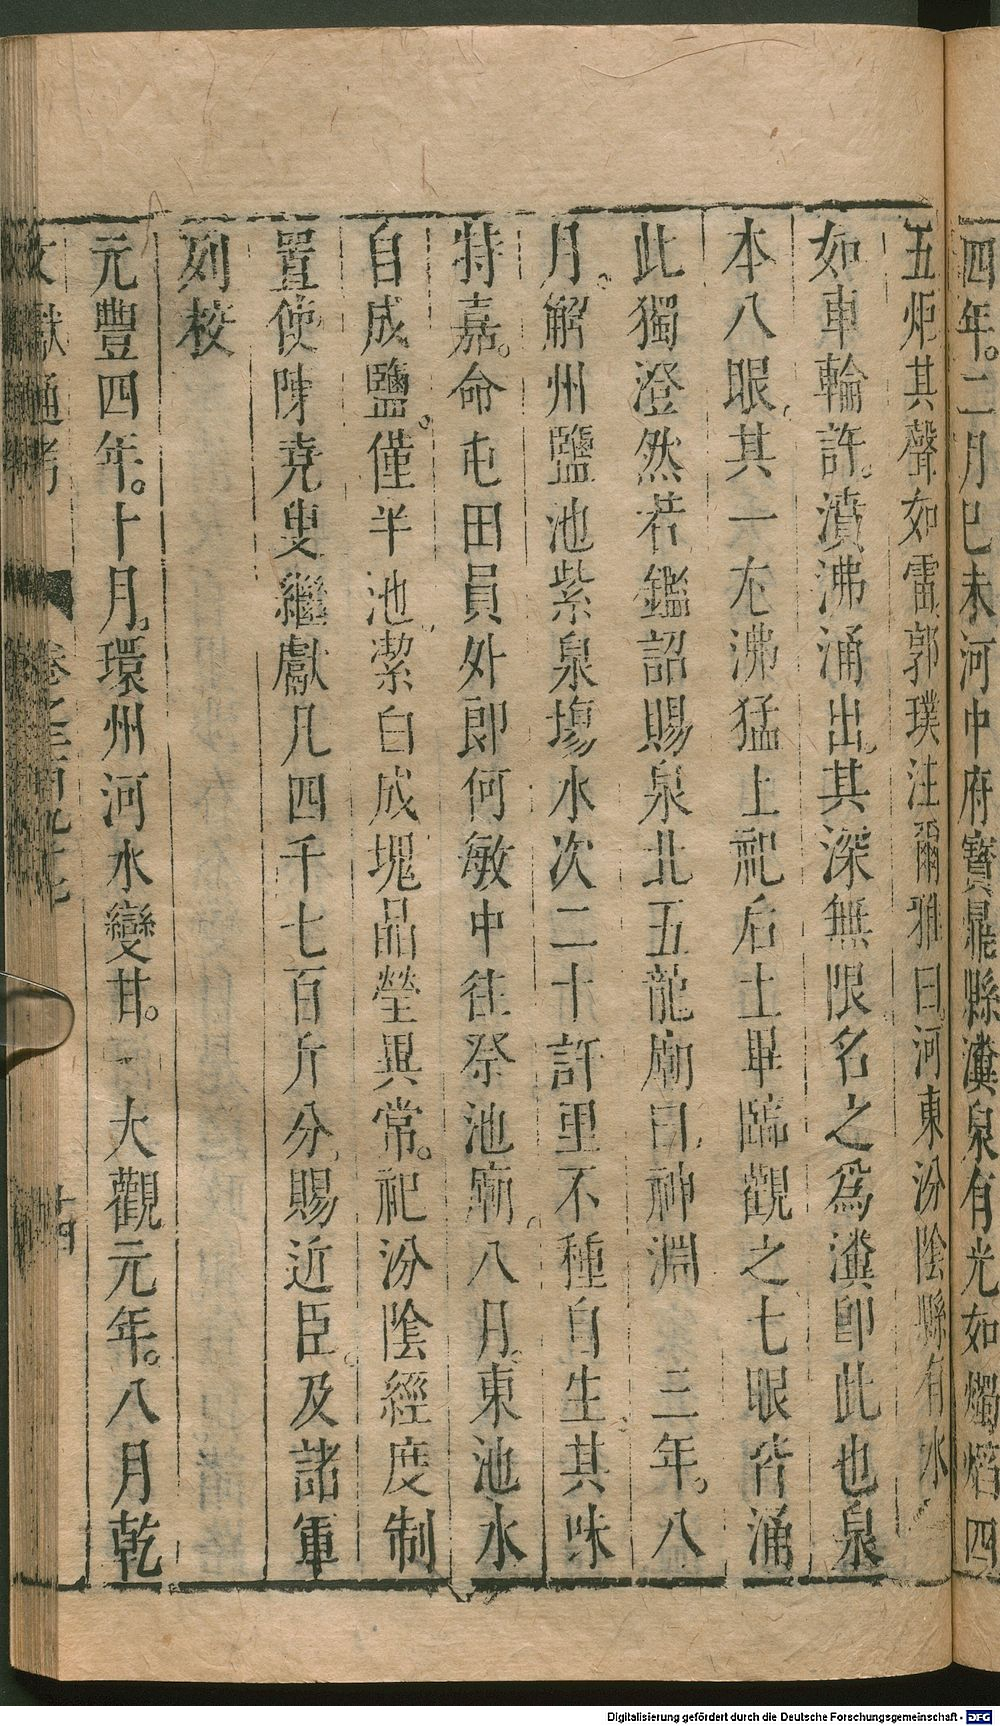 四年。二月巳未河中府寶鼎縣瀵泉有光如燭焰四
五炬其聲如雷郭璞注爾雅曰河東汾陰縣有水
如車輪許。濆沸涌出。其深無限名之爲瀵卽此也泉
本八眼其一尤沸猛上祀后土畢臨觀之七眼皆涌
此獨澄然若鑑詔賜泉北五龍廟曰神淵　三年。八
月。解州鹽池紫泉塲水次二十許里不種自生其味
特嘉。命屯田員外郎何敏中往祭池廟。八月。東池水
自成鹽。僅半池潔白成塊品瑩異常。祀汾陰經度制
置使陳堯叟繼獻凡四千七百斤分賜近臣。及諸軍
列校
元豐四年。十月。環州河水變甘。　大觀元年。八月乾
文獻通考　卷之三百九十七　十四
Digitalisierung gefördert durch die Deutsche Forschungsgemeinschaft - DFG